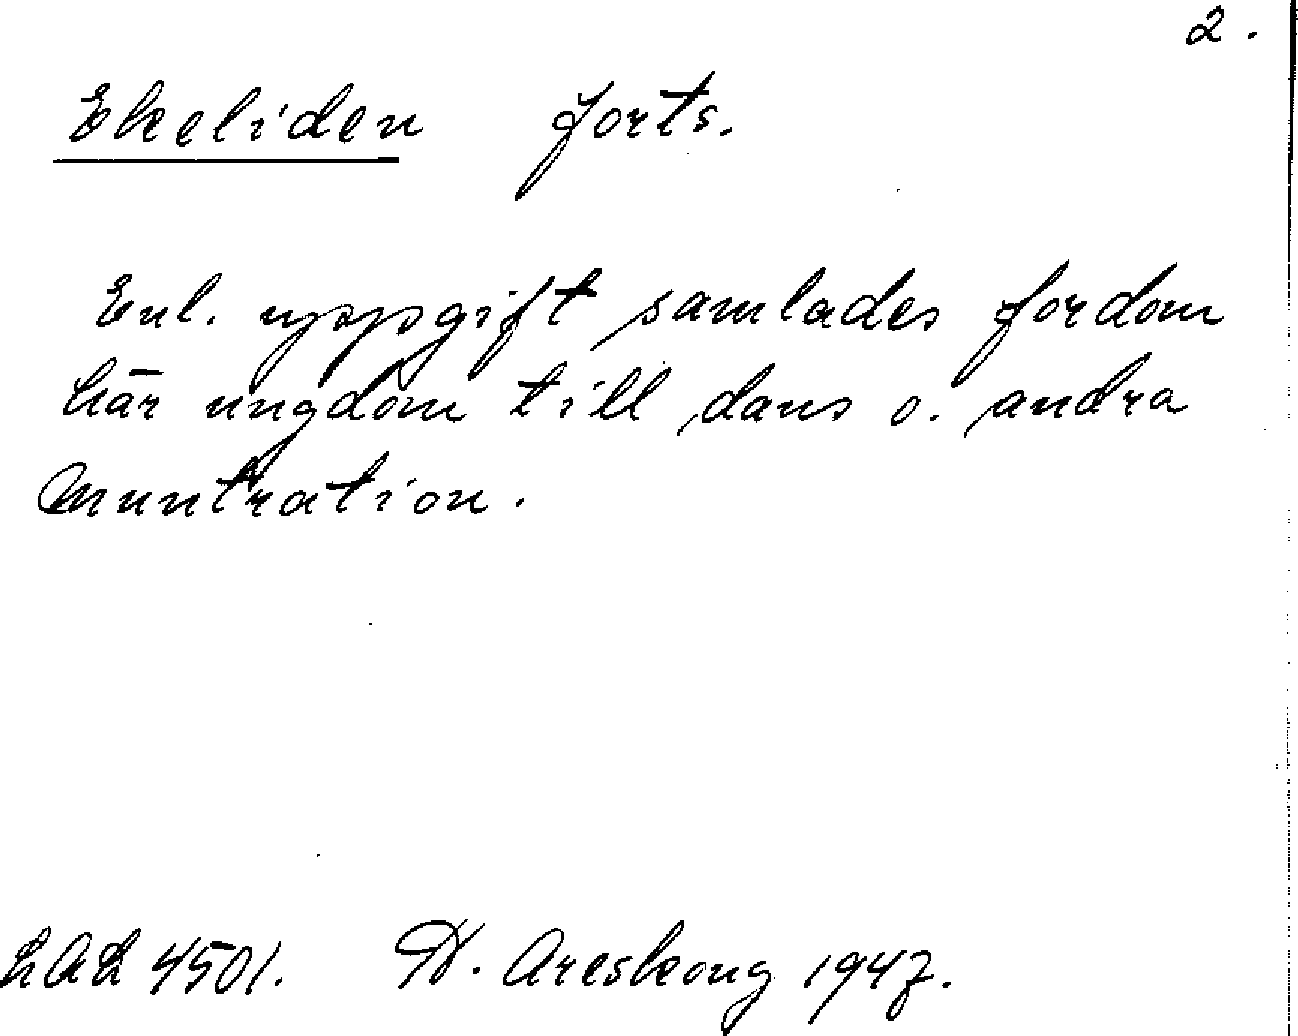 2.
Ekeliden forts.
Enl. uppgift samlades fordom
här ungdom till dans o. andra
muntration.
LAL 4501. D. Areskoug 1947.